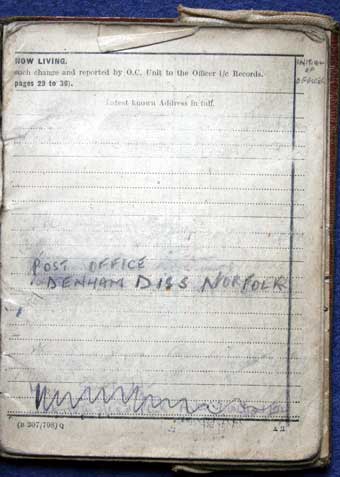 NOW LIVING.
INITIAL
OF
OFFICER
such change and reported by O.C. Unit to the Officer i/c Records.
pages 29 to 36).
Latest known Address in full.
POST OFFICE
DENHAM DISS NORFOLK
(B 307/708) Q